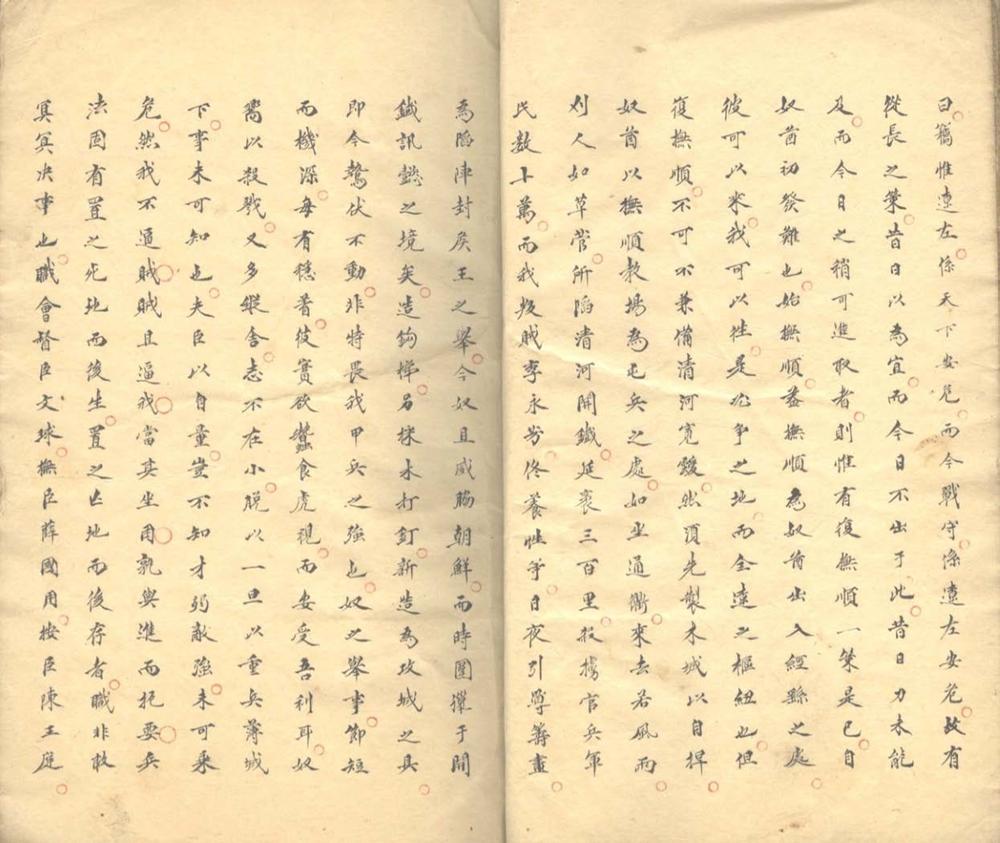 曰竊惟遼左係天下安危而今戰守係遼左安危故有
從長之策昔日以為宜而今日不出于此昔日力未能
及而今日之稍可進取者則惟有復撫順一策是已自
奴酋初發難也始撫順蓋撫順為奴酋出入經繇之處
彼可以來我可以往是必爭之地而全遼之樞紐也但
復撫順不可不兼備清河寬靉然須先製木城以自捍
奴酋以撫順教場為屯兵之處如坐通衢來去若風雨
刈人如草菅所陷清河開鐵延袤三百里投擄官兵軍
民數十萬而我叛賊李永芳佟養性等日夜引導籌畫
為陷陣封侯王之舉今奴且威脇朝鮮而時圍獵于開
鐵訊懿之境矣造鉤梯另採木打釘新造為攻城之具
即今驁伏不動非特畏我甲兵之強也奴之舉事節短
而機深每有穩著彼實欲蠶食虎視而安受吾利耳奴
嵩以殺戮又多縱舍志不在小脫以一旦以重兵薄城
下事未可知也夫臣以自量豈不知才弱敵強未可乘
危然我不逼賊賊且逼我當其坐用孰與進而扼要兵
法固有置之死地而後生置之亡地而後存者職非敢
冥冥决事也職會督臣文球撫臣薛國用按臣陳王庭